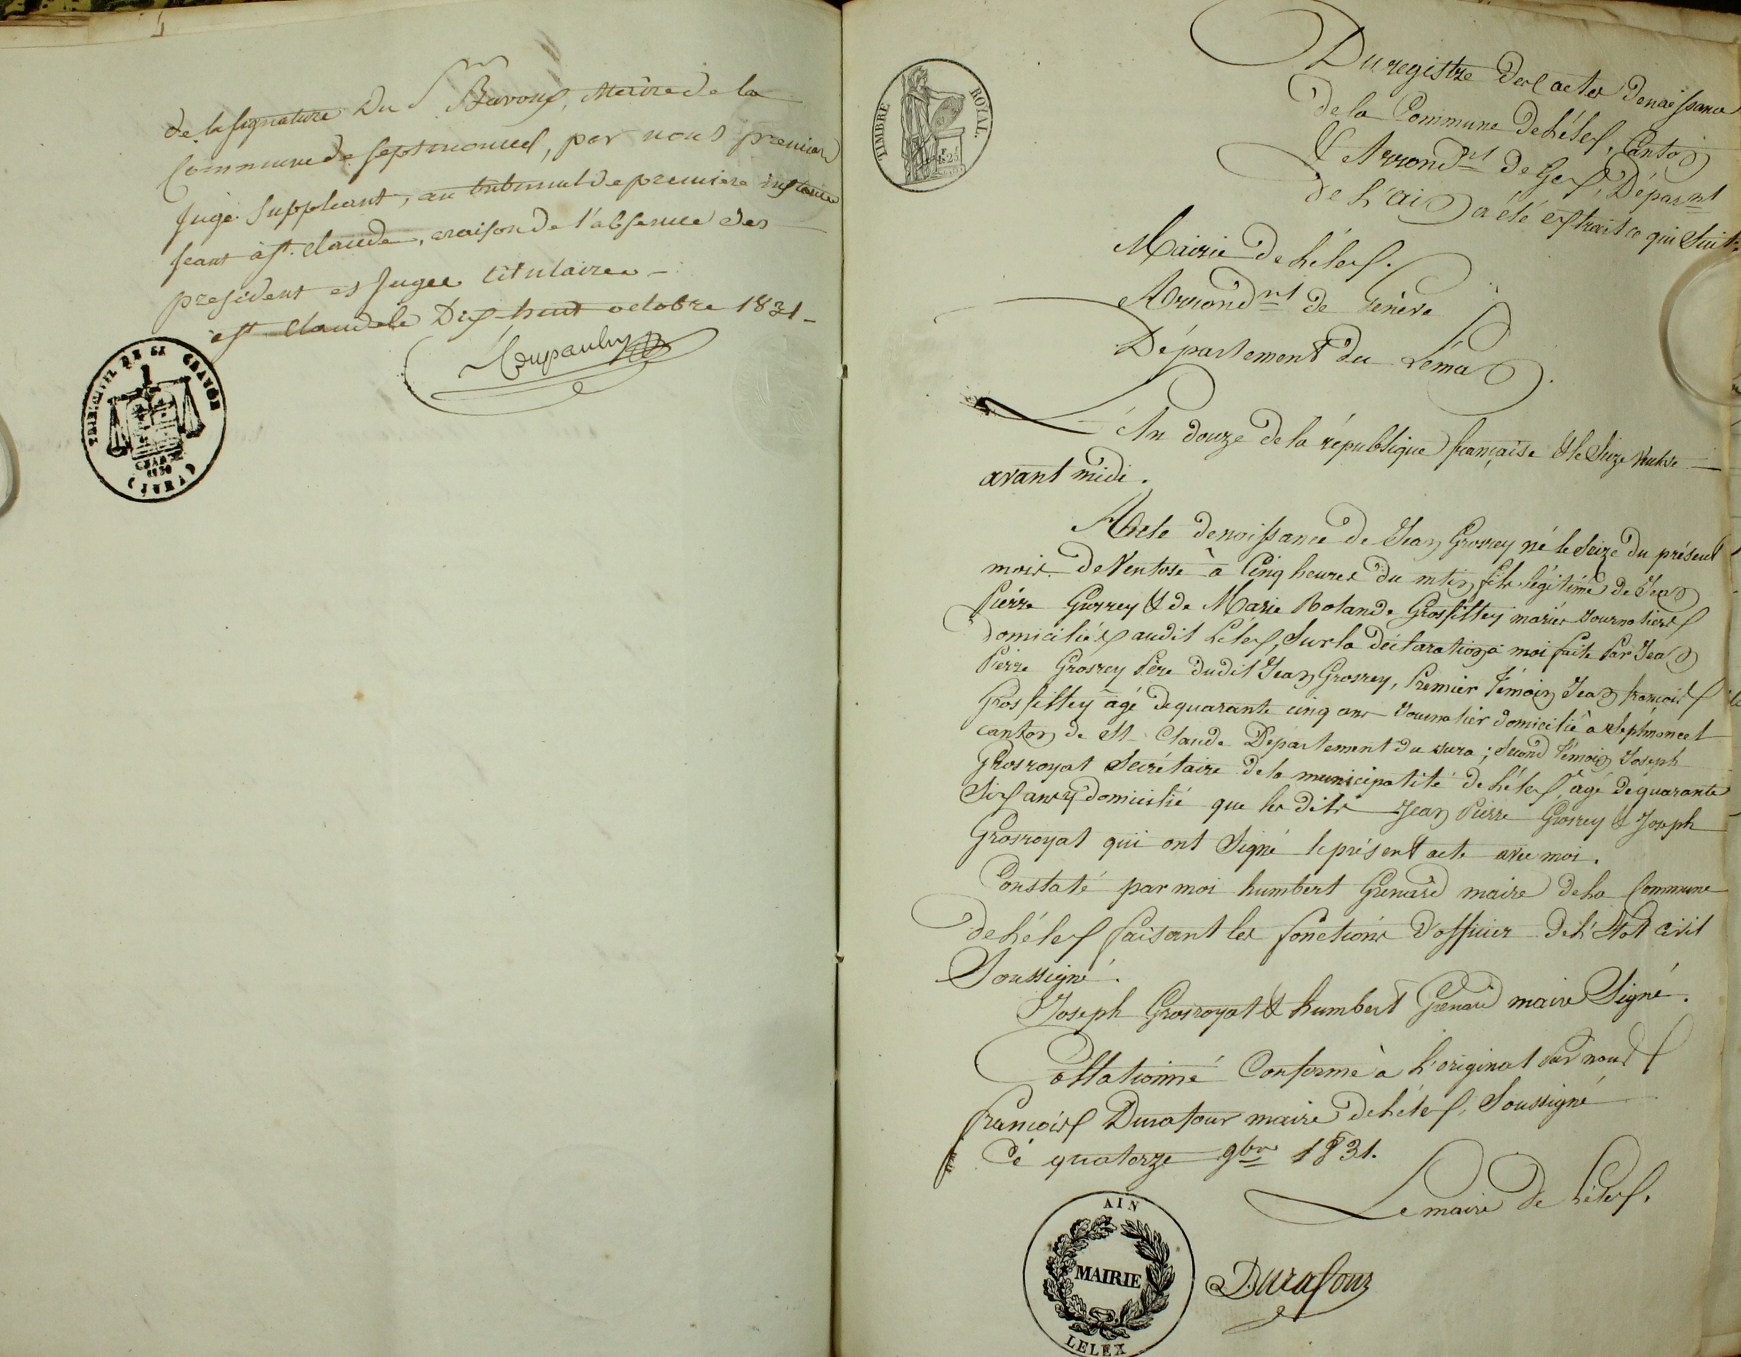 de la signature du Sr Buroux, Maire de la
Commune de Septmoncel, par nous premier
Juge Suppleant, au tribunal de premiere instance
seant à St. Claude, a raison de l'absence des
president et Juges titulaires –
à St Claude le Dix huit octobre 1831 –
TRIBUNAL DE St CLAUDE
(JURA)
TIMBRE ROYAL.
Du registre des actes de naissance
de la Commune de Lélex, Canton
& Arrondnt de Gex, Déparnt
de l'Ain a été extrait ce qui Suit :
Mairie de Lélex.
Arrondnt de Genève
Département du Léman.
L'An douze de la république française & le Seize Ventose
avant midi.
Acte de naissance de Jean Grosrey né le Seize du présent
mois de Ventose à Cinq heures du matin fils légitime de Jean
Pierre Grosrey & de Marie Rolande Grosfilley mariés Journaliers
domiciliés audit Lélex, Sur la déclaration à moi faite Par Jean
Pierre Grosrey Père dudit Jean Grosrey, Premier témoin Jean françois
Grosfilley âgé de quarante cinq ans Journalier domicilié à Septmoncel
canton de St Claude Département du Jura ; Second témoin Joseph
Grosroyat Secrétaire de la municipalité de Lélex âgé de quarante
Six ans y domicilié que les dits Jean Pierre Grosrey & Joseph
Grosroyat qui ont Signé le présent acte avec moi.
Constaté par moi humbert Grenard maire de la Commune
de Lélex faisant les fonctions d'officier de l'Etat civil
Soussigné.
Joseph Grosroyat & humbert Grenard maire Signé.
Collationné Conforme à l'original Par nous
françois Durafour maire de Lélex, Soussigné
Ce quatorze 9bre 1831.
Le maire de Lélex.
Durafour
AIN
MAIRIE
LELEX